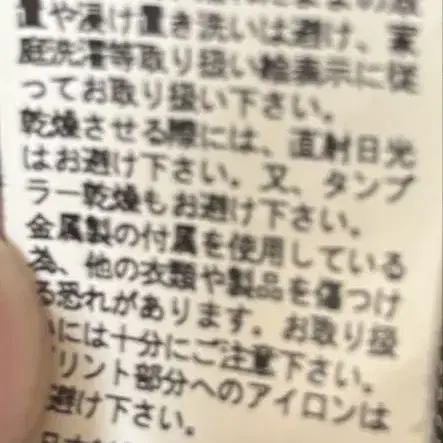 置や浸け置き洗いは避け、家
庭洗濯等取り扱い絵表示に従
ってお取り扱い下さい。
乾燥させる際には、直射日光
はお避け下さい。又、タンブ
ラー乾燥もお避け下さい。
金属製の付属を使用している
為、他の衣類や製品を傷つけ
る恐れがあります。お取り扱
いには十分にご注意下さい。
プリント部分へのアイロンは
避け下さい。